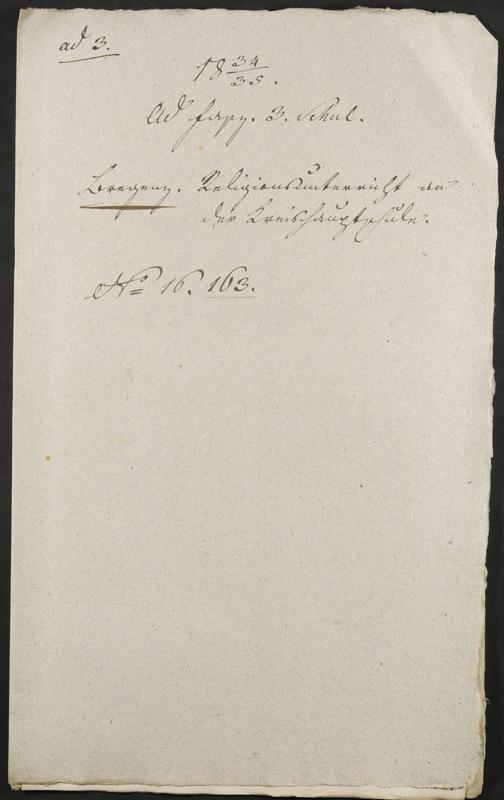 ad 3.
18 34/35.
Ad fasz. 3. Schul.
Bregenz. Religionsunterricht an
der Kreishauptschule.
No 16. 163.